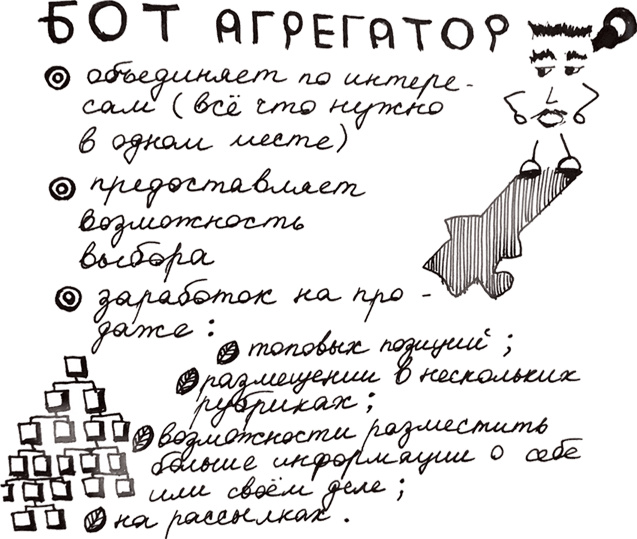 БОТ АГРЕГАТОР
объединяет по интере-
сам (всё что нужно
в одном месте)
предоставляет
возможность
выбора
заработок на про-
даже:
топовых позиций;
размещении в нескольких
рубриках;
возможности разместить
больше информации о себе
или своём деле;
на рассылках.